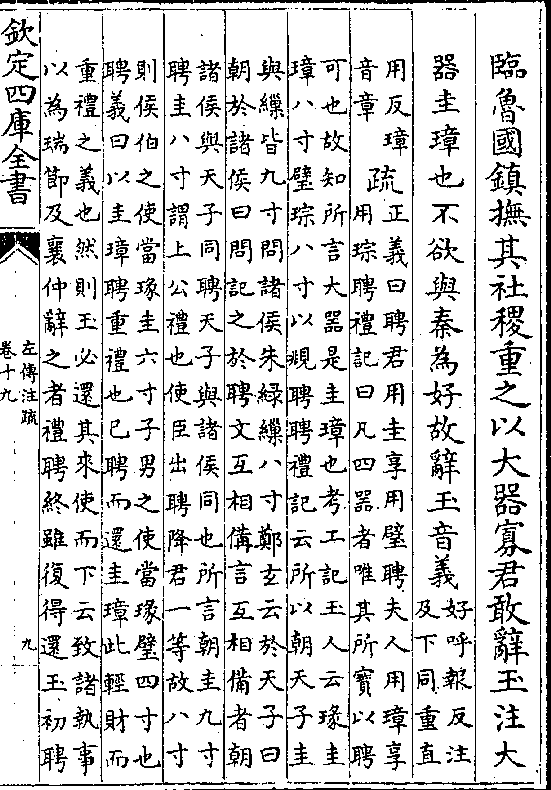 臨魯國鎮撫其社稷重之以大器寡君敢辭玉注大
器圭璋也不欲與秦為好故辭玉音義
好呼報反注
及下同重直
用反璋
音章
疏
正義曰聘君用圭享用璧聘夫人用璋享
用琮聘禮記曰凡四器者唯其所寳以聘
可也故知所言大器是圭璋也考工記玉人云瑑圭
璋八寸璧琮八寸以覜聘聘禮記云所以朝天子圭
與繅皆九寸問諸侯朱緑繅八寸鄭玄云於天子曰
朝於諸侯曰問記之於聘文互相備言互相備者朝
諸侯與天子同聘天子與諸侯同也所言朝圭九寸
聘圭八寸謂上公禮也使臣出聘降君一等故八寸
則侯伯之使當瑑圭六寸子男之使當瑑璧四寸也
聘義曰以圭璋聘重禮也已聘而還圭璋此輕財而
重禮之義也然則玉必還其來使而下云致諸執事
以為瑞節及襄仲辭之者禮聘終雖復得還玉初聘
欽定四庫全書
左傳注疏
卷十九
九